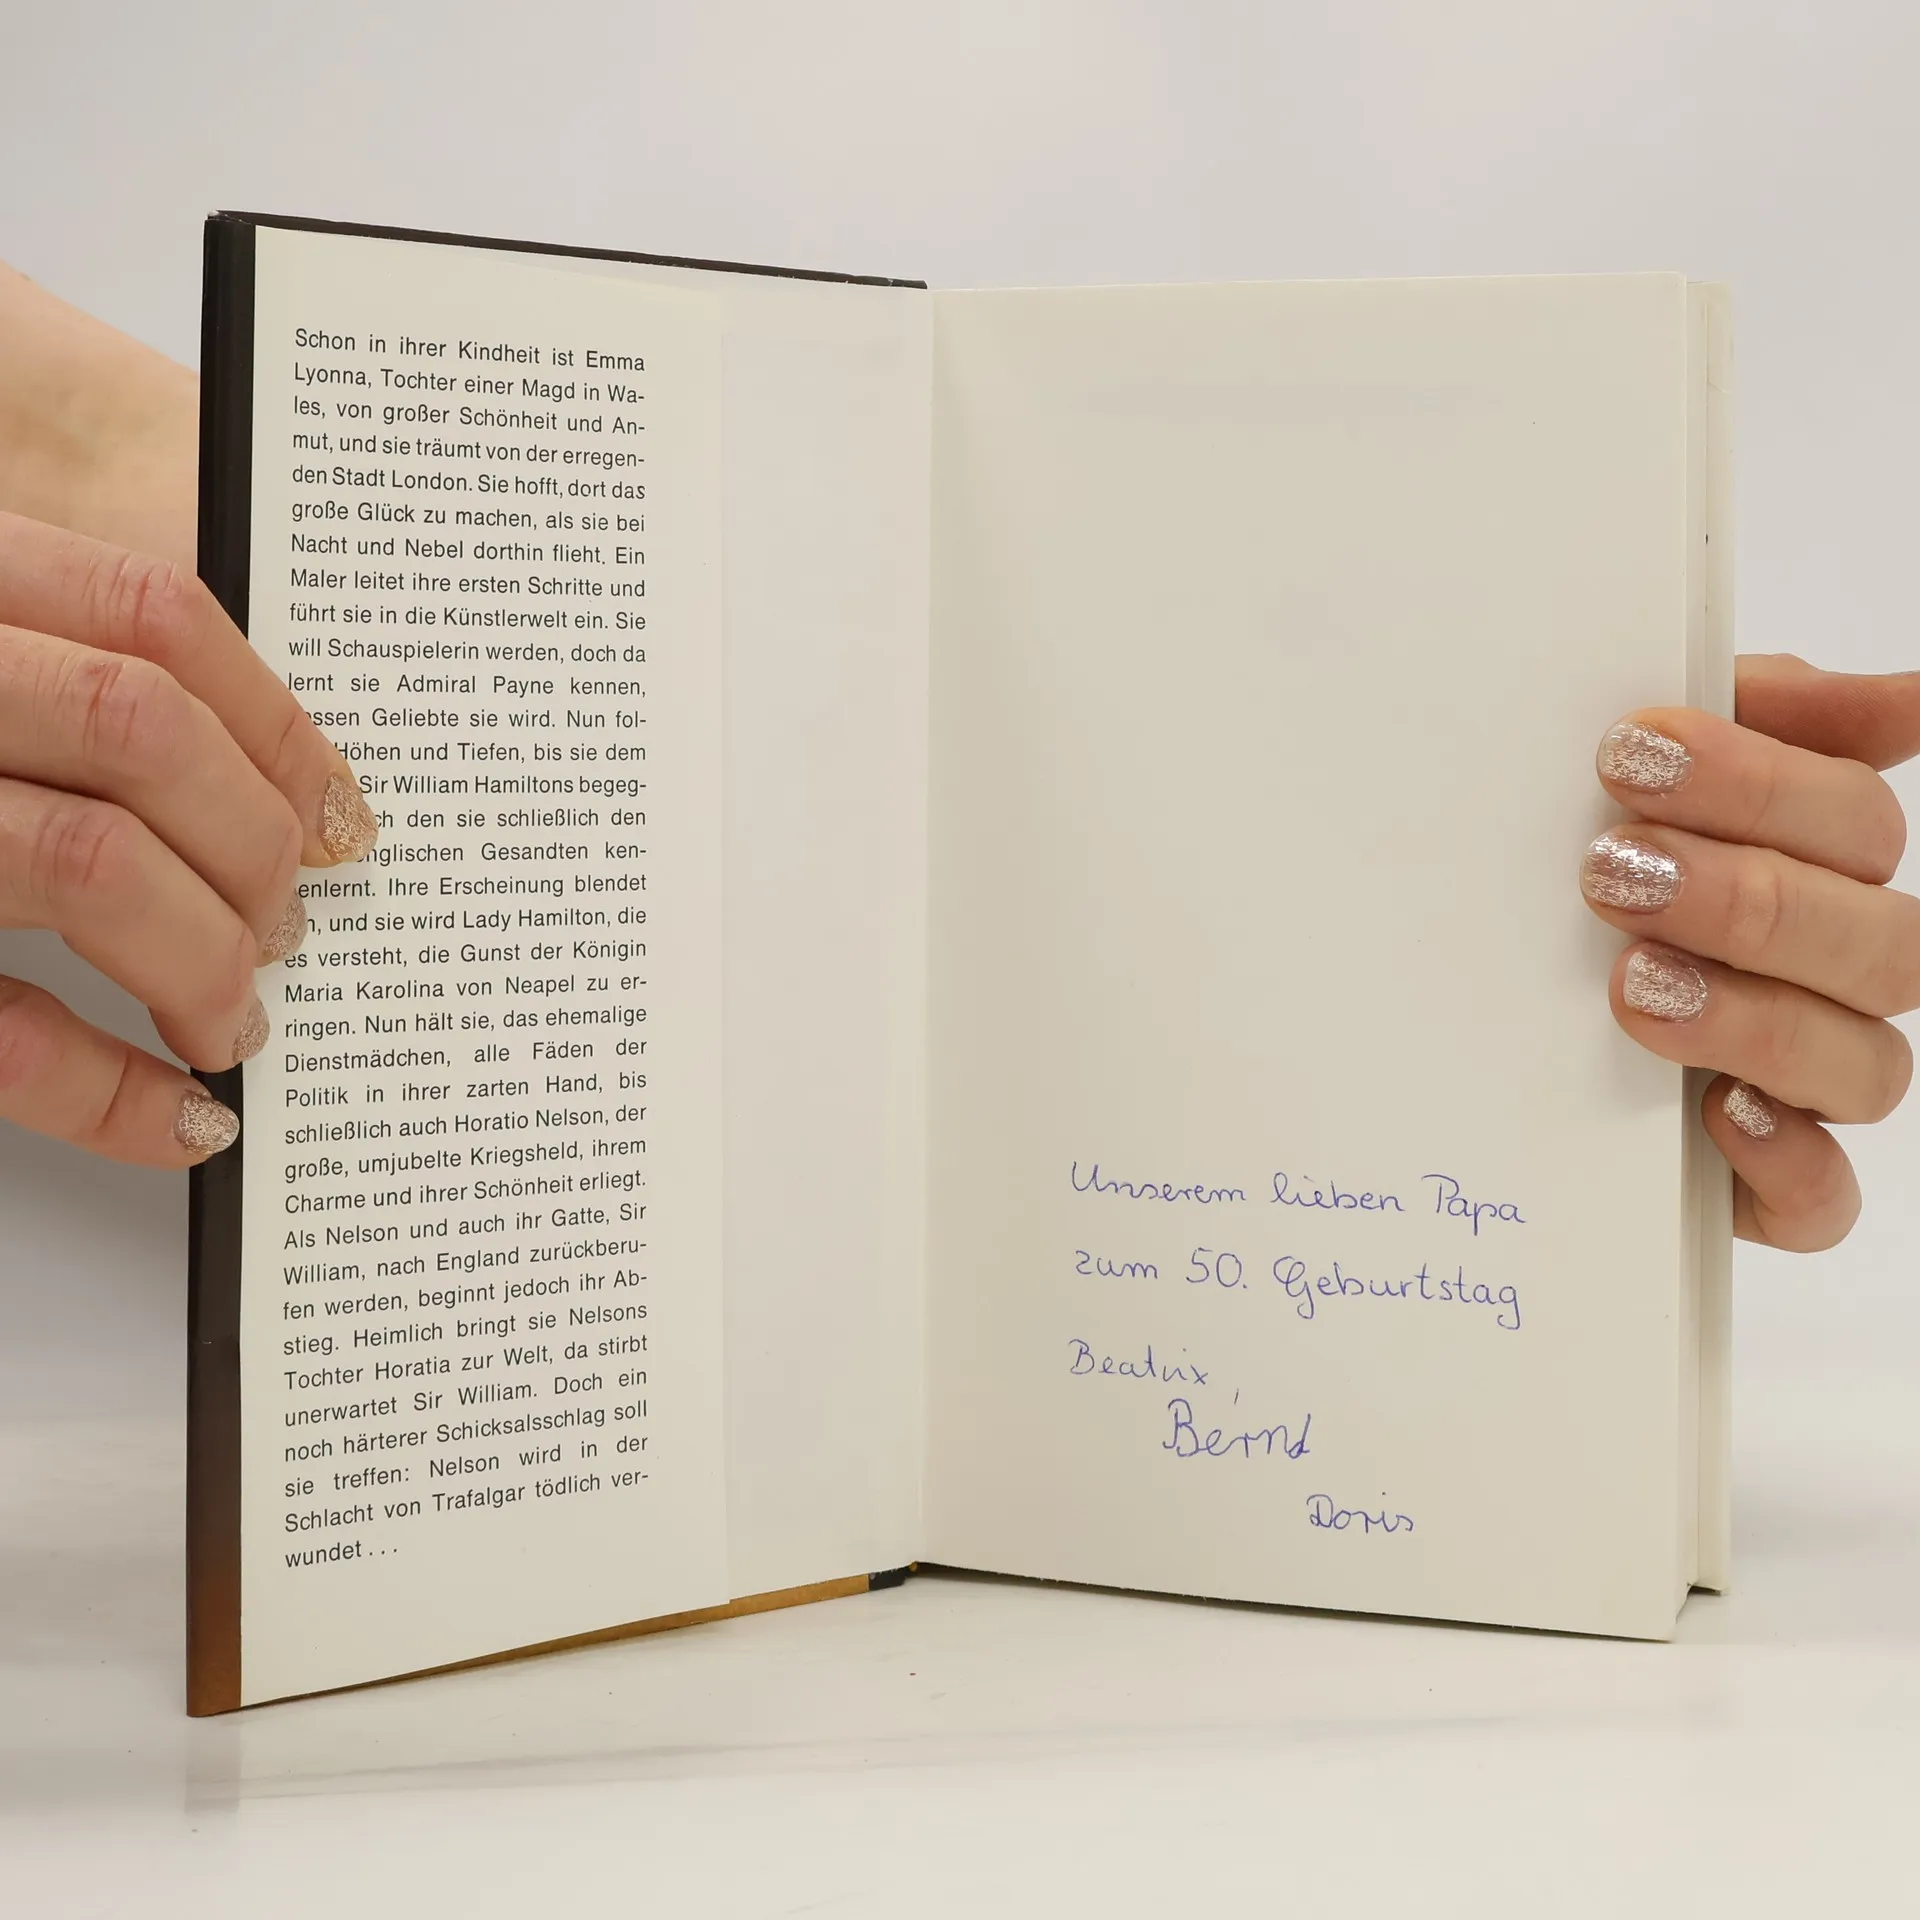 Schon in ihrer Kindheit ist Emma
Lyonna, Tochter einer Magd in Wa-
les, von großer Schönheit und An-
mut, und sie träumt von der erregen-
den Stadt London. Sie hofft, dort das
große Glück zu machen, als sie bei
Nacht und Nebel dorthin flieht. Ein
Maler leitet ihre ersten Schritte und
führt sie in die Künstlerwelt ein. Sie
will Schauspielerin werden, doch da
lernt sie Admiral Payne kennen,
Geliebte sie wird. Nun fol-
Höhen und Tiefen, bis sie dem
Sir William Hamiltons begeg-
den sie schließlich den
Gesandten ken-
enlernt. Ihre Erscheinung blendet
und sie wird Lady Hamilton, die
es versteht, die Gunst der Königin
Maria Karolina von Neapel zu er-
ringen. Nun hält sie, das ehemalige
Dienstmädchen, alle Fäden der
Politik in ihrer zarten Hand, bis
schließlich auch Horatio Nelson, der
große, umjubelte Kriegsheld, ihrem
Charme und ihrer Schönheit erliegt.
Als Nelson und auch ihr Gatte, Sir
William, nach England zurückberu-
fen werden, beginnt jedoch ihr Ab-
stieg. Heimlich bringt sie Nelsons
Tochter Horatia zur Welt, da stirbt
unerwartet Sir William. Doch ein
noch härterer Schicksalsschlag soll
sie treffen: Nelson wird in der
Schlacht von Trafalgar tödlich ver-
wundet . . .
Unserem lieben Papa
zum 50. Geburtstag
Beatrix,
Bernd
Doris